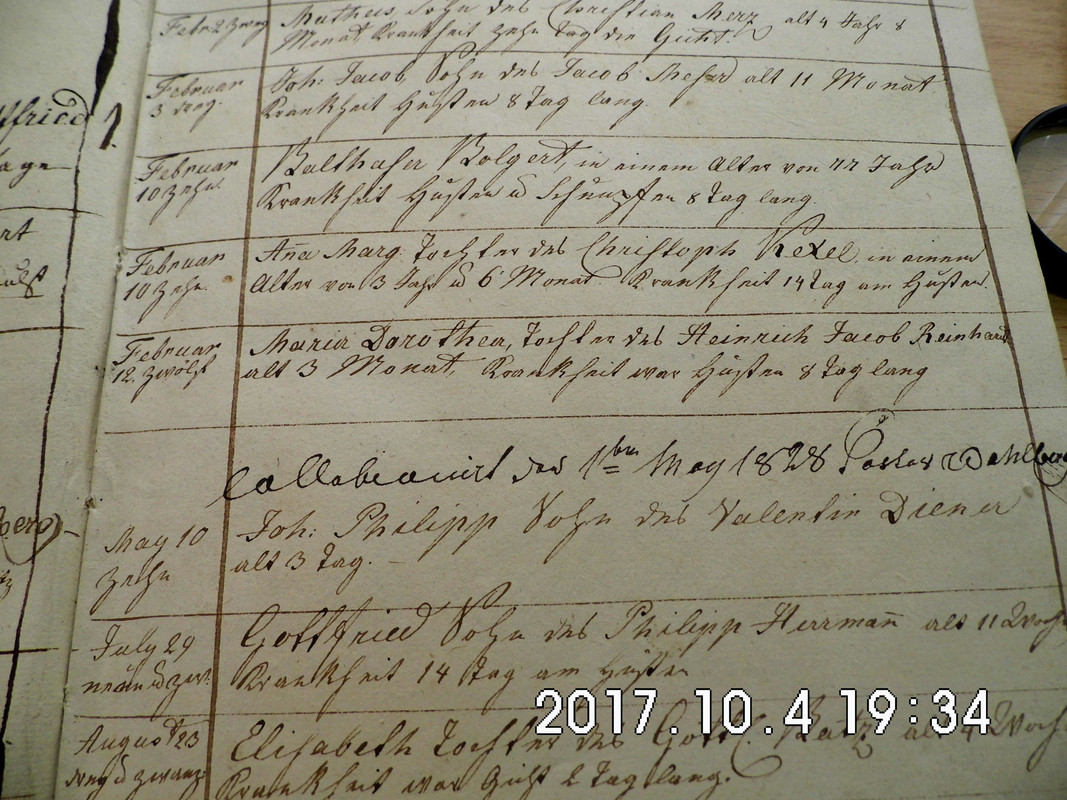 Febr 2 zwey
Matheus, Sohn des Christian Merz alt 4 Jahr 8
Monat Krankheit zehn Tag die Gicht.
Februar
3 drey.
Joh: Jacob, Sohn des Jacob alt 11 Monat
Krankheit Husten 8 Tag lang.
ffried
age
Februar
10 Zehn.
Balthaser Bolgert, in einem Alter von 77 Jahr
Krankheit Husten u Schnupfen 8 Tag lang.
Februar
10 Zehn.
Ana Marg. Tochter des Christoph Rexel, in einem
Alter von 3 Jahr u 6 Monat. Krankheit 14 Tag am Husten.
Februar
12. zwölf
Maria Dorothea, Tochter des Heinrich Jacob Reinhard
alt 3 Monat. Krankheit war Husten 8 Tag lang
den 1ten May 1828 Pastor Dahlberg
May 10
Zehn
Joh: Philipp Sohn des Valentin Diener
alt 3 Tag.
July 29
neun u zwz.
Gottfried Sohn des Philipp Herrman alt 11 Woch
Krankheit 14 Tag am Husten
August 23
drey u zwanz.
Elisabeth Tochter des Gottf. Batz alt 4 Woch
Krankheit war Gicht 2 Tag lang.
2017.10.4 19:34